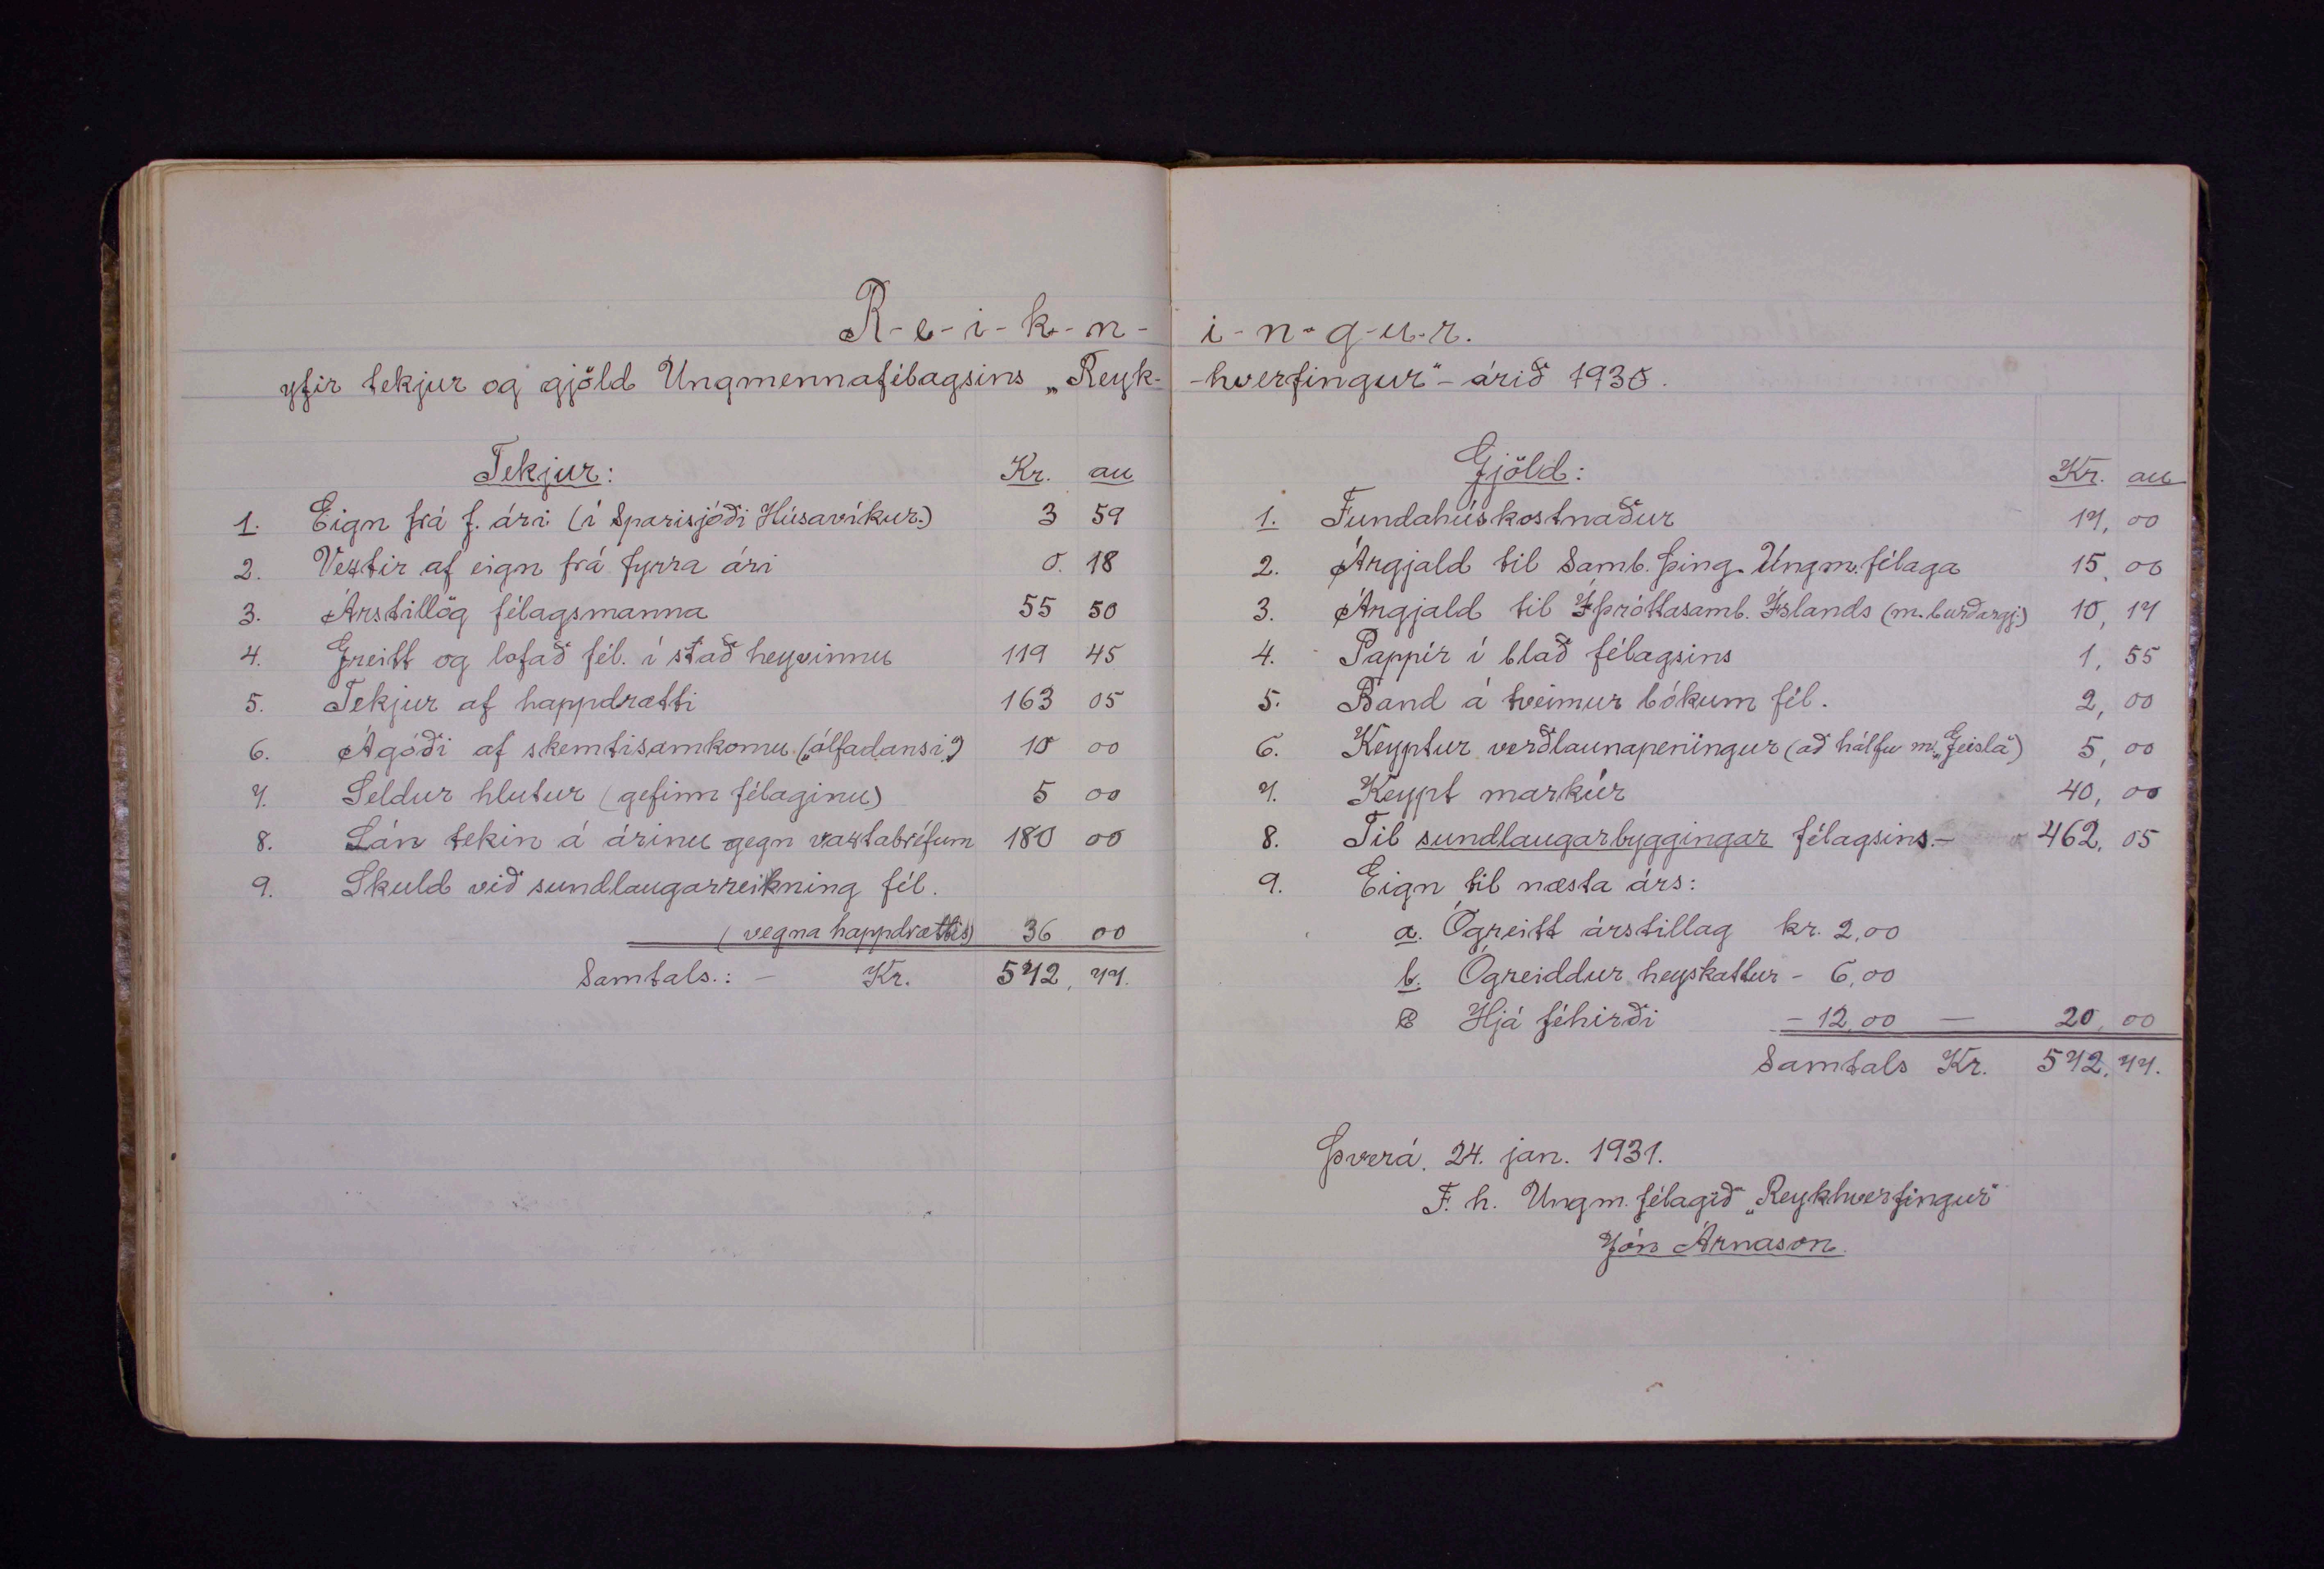 R-e-i-k-n-i-n-g-u-r.
yfir tekjur og gjöld Ungmennafélagsins „Reyk--hverfingur"- árið 1930.
Tekjur: Kr. au
1. Eign frá f. ári (í Sparisjóði Húsavíkur.) 3 59
2. Vextir af eign frá fyrra ári 0. 18
3. Árstillög félagsmanna 55 50
4. Greitt og lofað fél. í stað heyvinnu 119 45
5. Tekjur af happdrætti 163 05
6. Ágóði af skemtisamkomu („álfadansi") 10 00
7. Seldur hlutur (gefinn félaginu) 5 00
8. Lán tekin á árinu gegn vaxtabréfum 180 00
9. Skuld við sundlaugarreikning fél.
(vegna happdrættis) 36 00
Samtals.: - Kr. 572, 77.
Gjöld: Kr. au
1. Fundahúskostnaður 17, 00
2. Árgjald til Samb. Þing. Ungm. félaga 15, 00
3. Árgjald til Íþróttasamb. Íslands (m. burðargj.) 10, 17
4. Pappír í blað félagsins 1, 55
5. Band á tveimur bókum fél. 2, 00
6. Keyptur verðlaunapeningur (að hálfu m. „Geisla") 5, 00
7. Keypt markúr 40, 00
8. Til sundlaugarbyggingar félagsins.- 462, 05
9. Eign til næsta árs:
a. Ógreitt árstillag kr. 2,00
b. Ógreiddur heyskattur - 6,00
c Hjá féhirði - 12,00 — 20, 00
Samtals Kr. 572, 77.
Þverá. 24. jan. 1931.
F. h. Ungm. félagið „Reykhverfingur"
Jón Árnason.